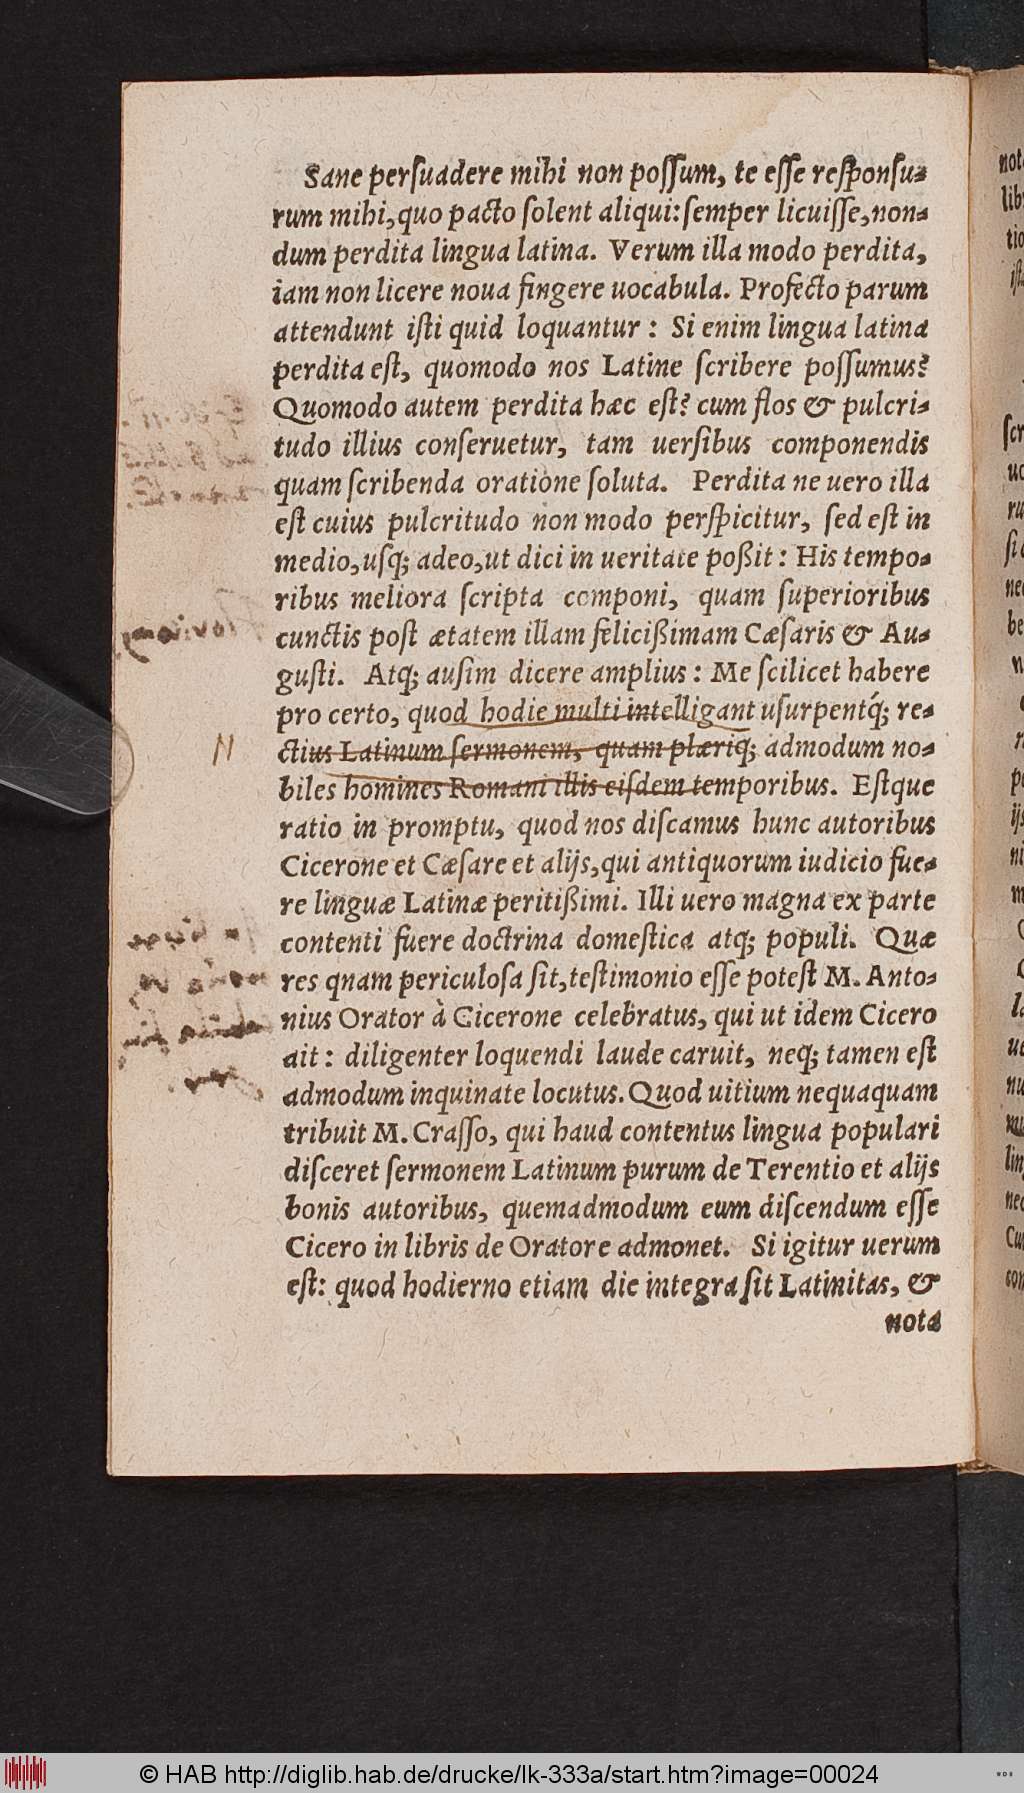 Sane perſuadere mihi non poſſum, te eſſe reſponſu-
rum mihi, quo pacto ſolent aliqui: ſemper licuiſſe, non-
dum perdita lingua latina. Verum illa modo perdita,
iam non licere noua fingere uocabula. Profecto parum
attendunt iſti quid loquantur: Si enim lingua latina
perdita eſt, quomodo nos Latine ſcribere poſſumus?
Quomodo autem perdita hæc eſt? cum flos & pulcri-
tudo illius conſeruetur, tam uerſibus componendis
quam ſcribenda oratione ſoluta. Perdita ne uero illa
eſt cuius pulcritudo non modo perſpicitur, ſed eſt in
medio, uſq; adeo, ut dici in ueritate poßit: His tempo-
ribus meliora ſcripta componi, quam ſuperioribus
cunctis poſt ætatem illam felicißimam Cæſaris & Au-
guſti. Atq; auſim dicere amplius: Me ſcilicet habere
pro certo, quod hodie multi intelligant uſurpentq́; re-
ctius Latinum ſermonem, quam plæriq; admodum no-
biles homines Romani illis eiſdem temporibus. Eſtque
ratio in promptu, quod nos diſcamus hunc autoribus
Cicerone et Cæſare et alijs, qui antiquorum iudicio fue-
re linguæ Latinæ peritißimi. Illi uero magna ex parte
contenti fuere doctrina domeſtica atq; populi. Quæ
res qnam periculoſa ſit, teſtimonio eſſe poteſt M. Anto-
nius Orator à Cicerone celebratus, qui ut idem Cicero
ait: diligenter loquendi laude caruit, neq; tamen eſt
admodum inquinate locutus. Quod uitium nequaquam
tribuit M. Craſſo, qui haud contentus lingua populari
diſceret ſermonem Latinum purum de Terentio et alijs
bonis autoribus, quemadmodum eum diſcendum eſſe
Cicero in libris de Oratore admonet. Si igitur uerum
eſt: quod hodierno etiam die integra ſit Latinitas, &
nota
© HAB http://diglib.hab.de/drucke/lk-333a/start.htm?image=00024